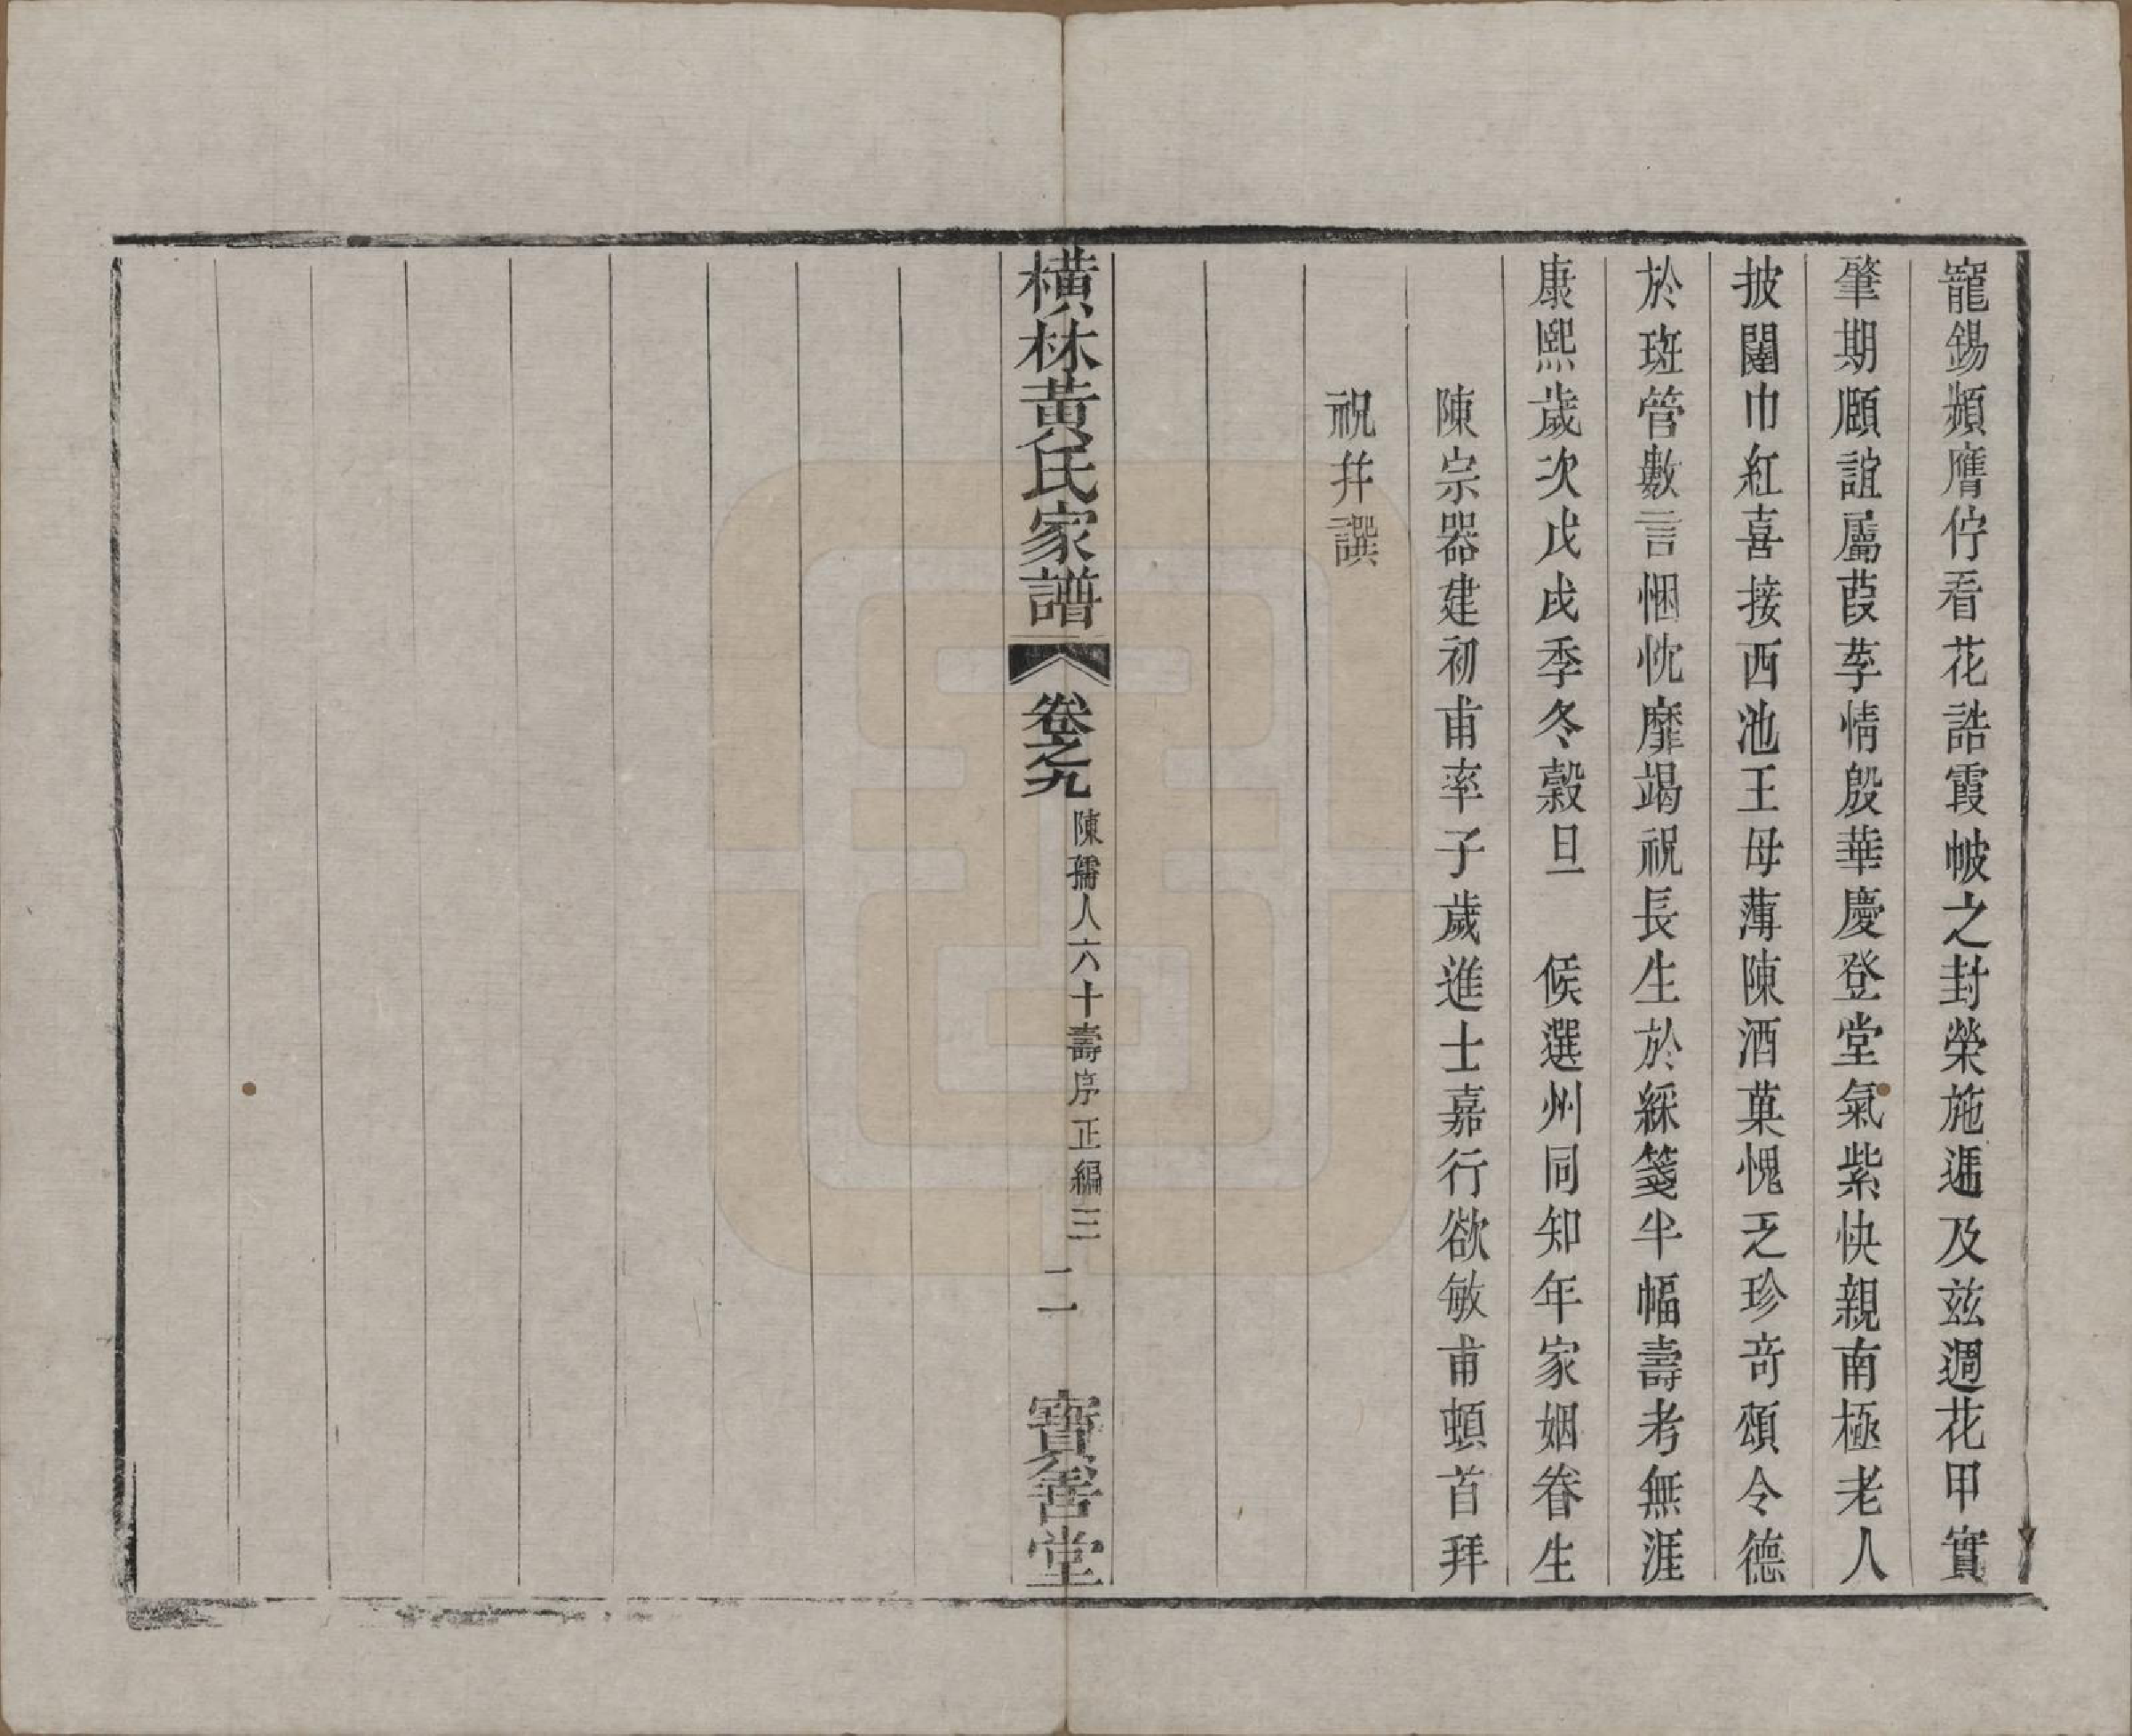 寵錫頻膺佇看花誥霞帔之封榮施遞及茲週花甲實
肇期頤誼屬葭莩情殷華慶登堂氣紫快親南極老人
披闥巾紅喜接西池王母薄陳酒菓愧乏珍奇頌令德
於斑管數言悃忱靡竭祝長生於綵箋半幅壽考無涯
康熙歲次戊戌季冬榖旦　候選州同知年家姻眷生
陳宗器建初甫率子歲進士嘉行欲敏甫頓首拜
祝并譔
橫林黃氏家譜　卷之九　陳孺人六十壽序正編三　二　寶善堂